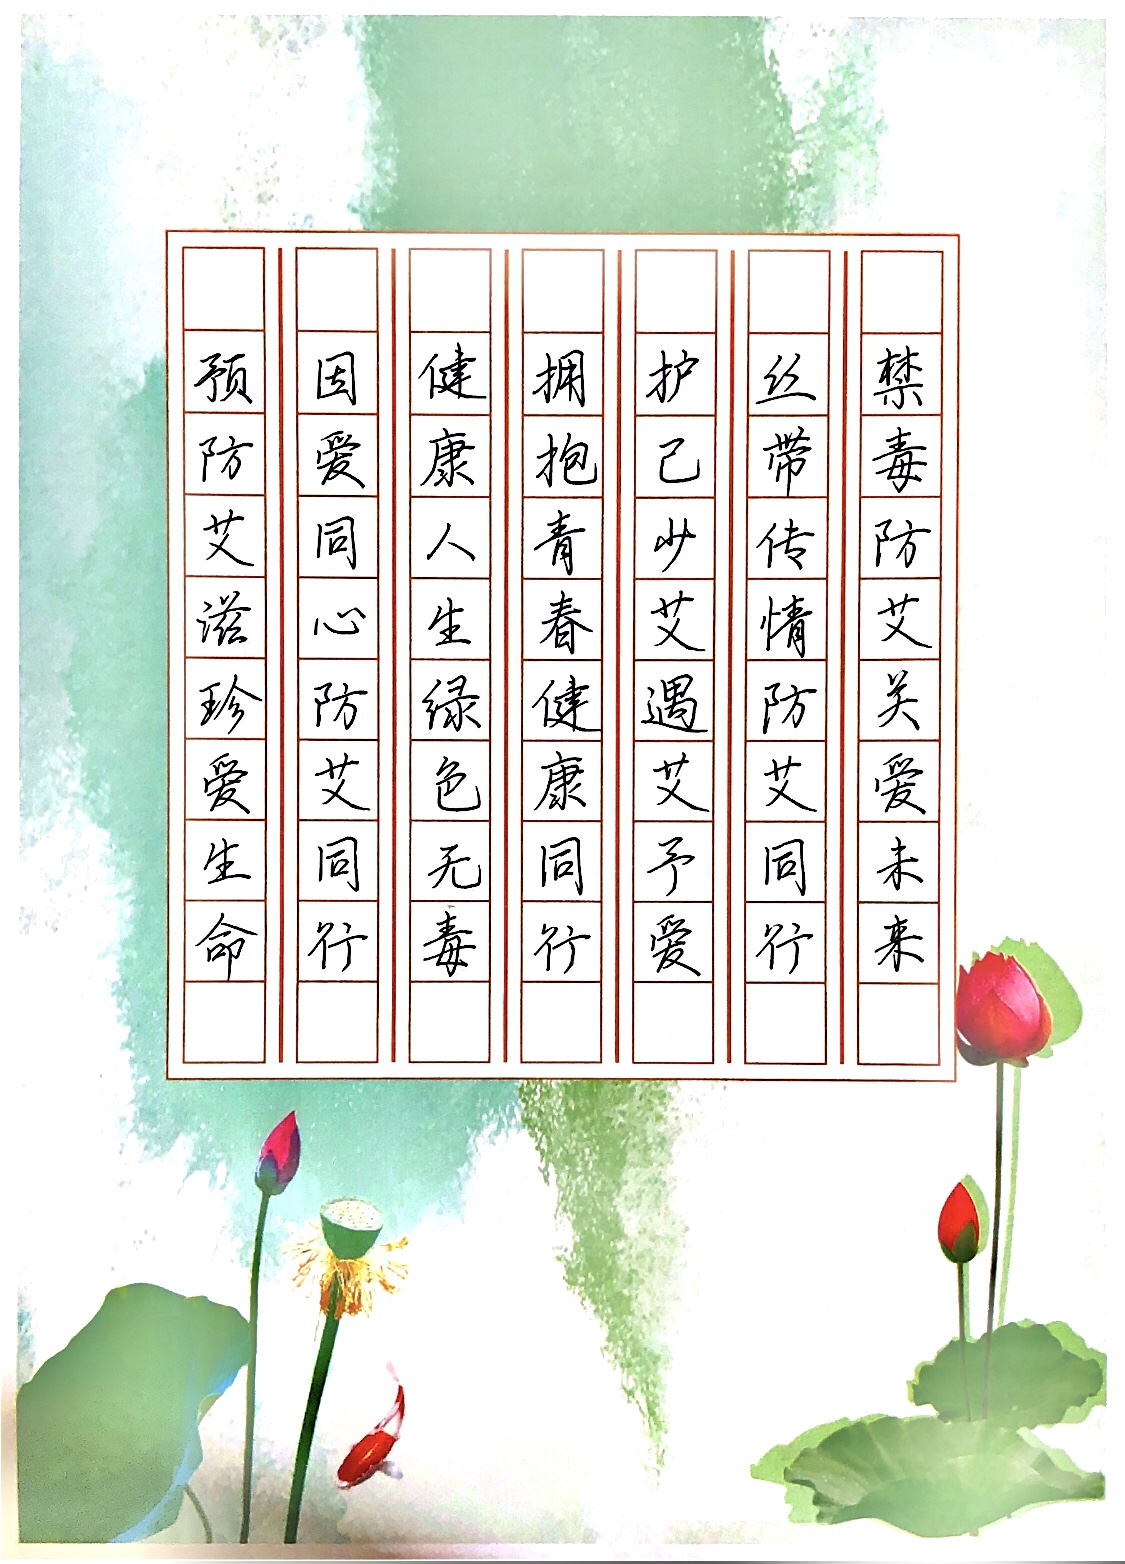 禁毒防艾关爱未来
丝带传情防艾同行
护己少艾遇艾予爱
拥抱青春健康同行
健康人生绿色无毒
因爱同心防艾同行
预防艾滋珍爱生命